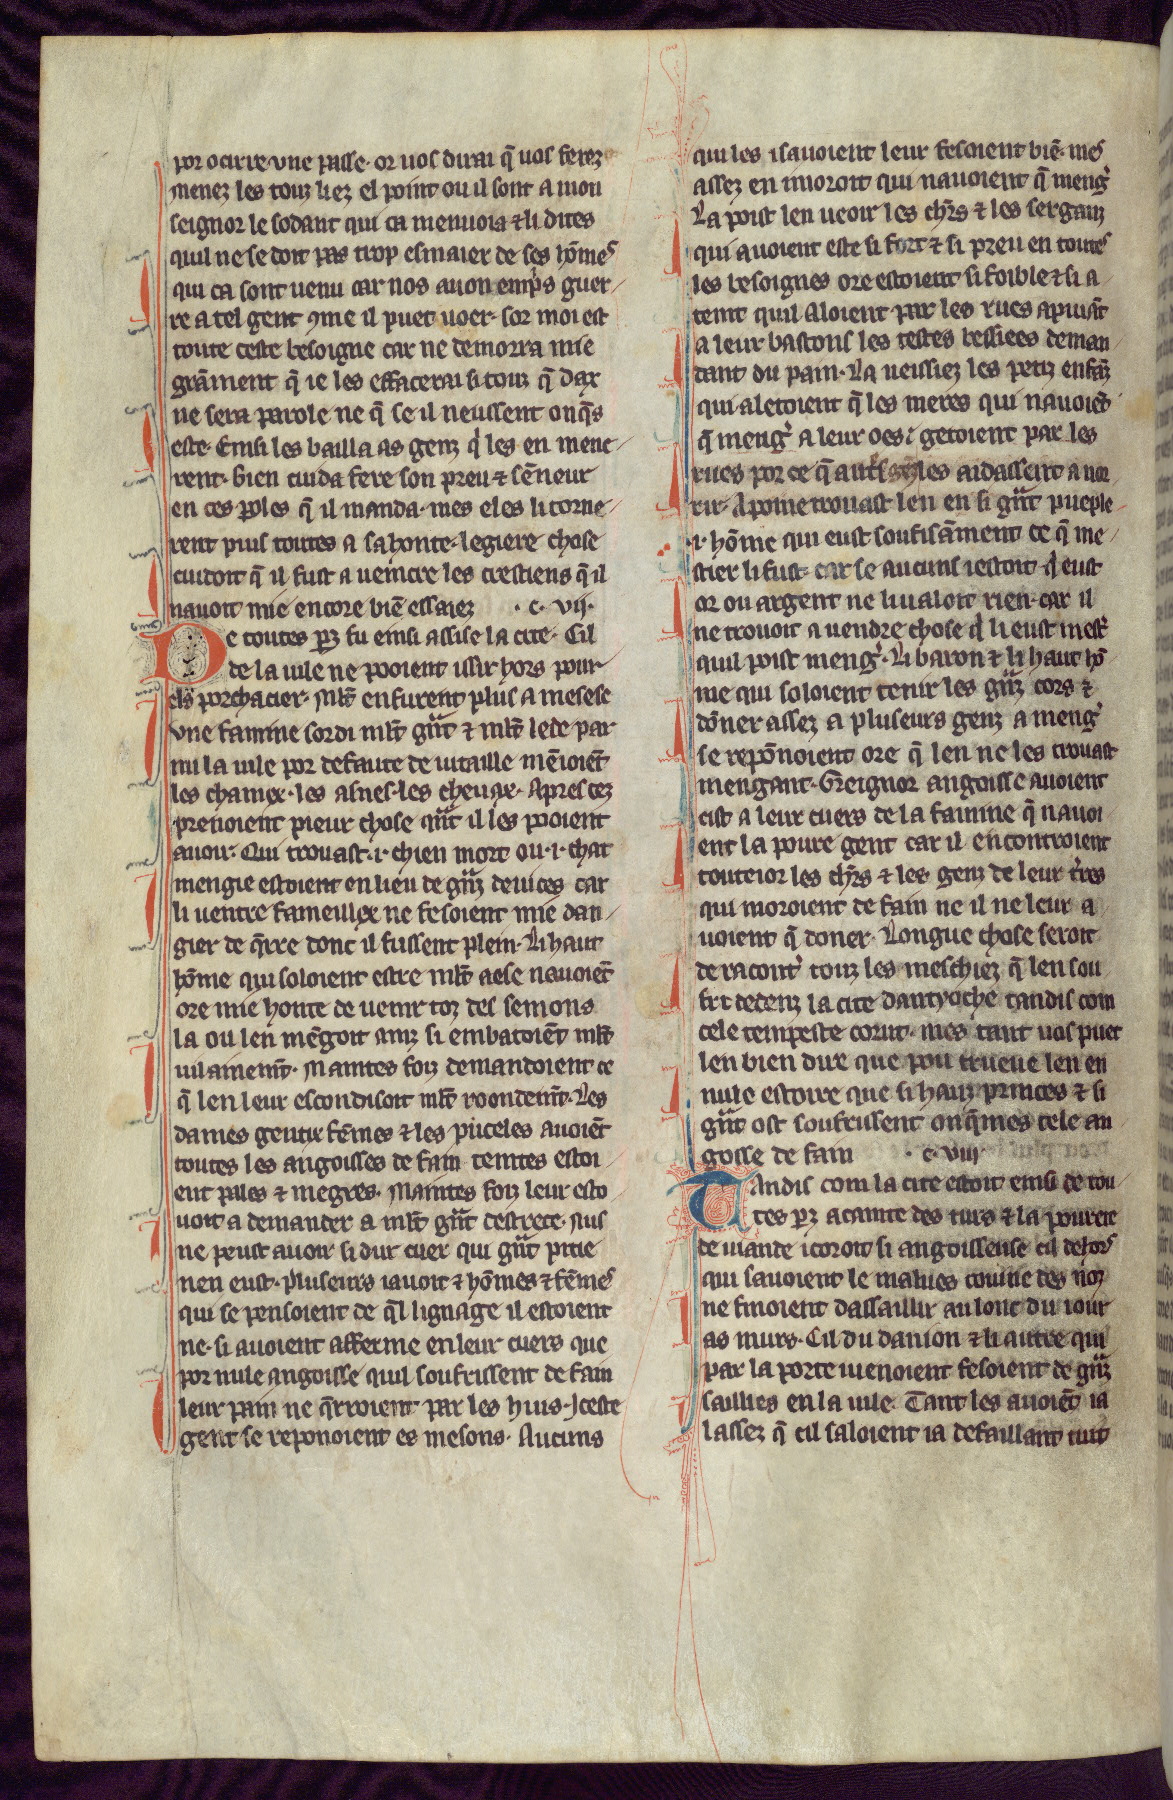 por ocirre une passe. or uos dirai q̄ uos ferez
menez les touz liez el point ou il sont a mon
seignor le sodant qui ca menuoia ⁊ li dites
quil ne se doit pas trop esmaier de ses hōmes
qui ca sont uenu car nos auon empris guer
re a tel gent ꝯme il puet uoer. sor moi est
toute ceste besoigne car ne demorra mie
grāment q̄ ie les effacerai si touz q̄ dax
ne sera parole ne q̄ se il neussent onq̄s
este. Ensi les bailla as genz qͥ les en mene
rent. bien cuida fere son preu ⁊ sēneur
en ces ꝑoles q̄ il manda. mes eles li torne
rent puis toutes a sa honte. legiere chose
cuidoit q̄ il fust a ueincre les crestiens q̄ il
nauoit mie encore biē essaiez . c. vij.
De toutes ꝑz fu ensi assise la cite. Cil
de la uile ne pooient issir hors pour
els porchacier. ml̄t en furent plus a mesese
vne famine sordi ml̄t gͣnt ⁊ ml̄t lede par
mi la uile por defaute de uitaille mēioiēt
les chamex. les asnes. les cheuax. Apres cez
prenoient pieur chose qͣnt il les pooient
auoir. Qui trouast .i. chien mort ou .i. chat
mengie estoient en lieu de gͣnz deuices car
li uentre fameillex ne fesoient mie dan
gier de q̄rre dont il fussent plein. Li haut
hōme qui soloient estre ml̄t aese nauoiēt
ore mie honte de uenir toz des semons
la ou len mēgoit ainz si embatoiēt ml̄t
uilainemt̄. Maintes foiz demandoient ce
q̄ len leur escondisoit ml̄t roondemt̄. Les
dames gentix fēmes ⁊ les puceles auoiēt
toutes les angoisses de fain teintes estoi
ent pales ⁊ megres. Maintes foiz leur esto
uoit a demander a ml̄t gͣnt destrece. nus
ne peust auoir si dur cuer qui gͣnt pitie
nen eust. pluseurs iauoit ⁊ hōmes ⁊ fēmes
qui se pensoient de q̄l lignage il estoient
ne. si auoient afferme en leur cuers que
por nule angoisse quil soufrissent de fain
leur pain ne q̄rroient par les huis. Jceste
gent se reponoient es mesons. Aucuns
qui les i sauoient leur fesoient biē. mes
assez en imoroit qui nauoient q̄ mengͥ
La poist len ueoir les chrs̄ ⁊ les serganz
qui auoient este si fort ⁊ si preu en toutes
les besoignes ore estoient si foible ⁊ si a
teint quil aloient par les rues apuiāt
a leur bastons les testes bessiees deman
dant du pain. La ueissiez les petiz enfāz
qui aletoient q̄ les meres qui nauoiēt
q̄ mengͥ a leur oes i getoient par les
rues por ce q̄ autres genz les aidassent a nor
rir. A poine trouast len en si gͣnt pueple
.i. hōme qui eust soufisāment ce q̄ me
stier li fust. car se aucuns i estoit qͥ eust
or ou argent ne li ualoit rien. car il
ne trouoit a uendre chose qͥ li eust mest͛
quil poist mengͥ. Li baron ⁊ li haut hō
me qui soloient tenir les gͣnz cors ⁊
dōner assez a pluseurs genz a mengͥ
se repōnoient ore q̄ len ne les trouast
mengant. Greignor angoisse auoient
cist a leur cuers de la famine q̄ nauoi
ent la poure gent car il encontroient
touteior les chrs̄ ⁊ les genz de leur tr̄res
qui moroient de fain ne il ne leur a
uoient q̄ doner. Longue chose seroit
de racontͥ touz les meschiez q̄ len sou
fri dedenz la cite dantyoche tandis com
cele tempeste corut. mes tant uos puet
len bien dire que pou trueue len en
nule estoire que si hauz princes ⁊ si
gͣnt ost soufrissent onq̄mes tele an
goisse de fain . c. viij.
Tandis com la cite estoit ensi de tou
tes ꝑz acainte des turs ⁊ la pourete
de uiande i coroit si angoisseuse cil dehors
qui sauoient le maluès couine des noz
ne finoient dassaillir au lonc du iour
as murs. Cil du danion ⁊ li autre qui
par la porte iuenoient fesoient de gͣnz
saillies en la uile. Tant les auoiēt ia
lassez q̄ cil saloient ia defaillant tuit